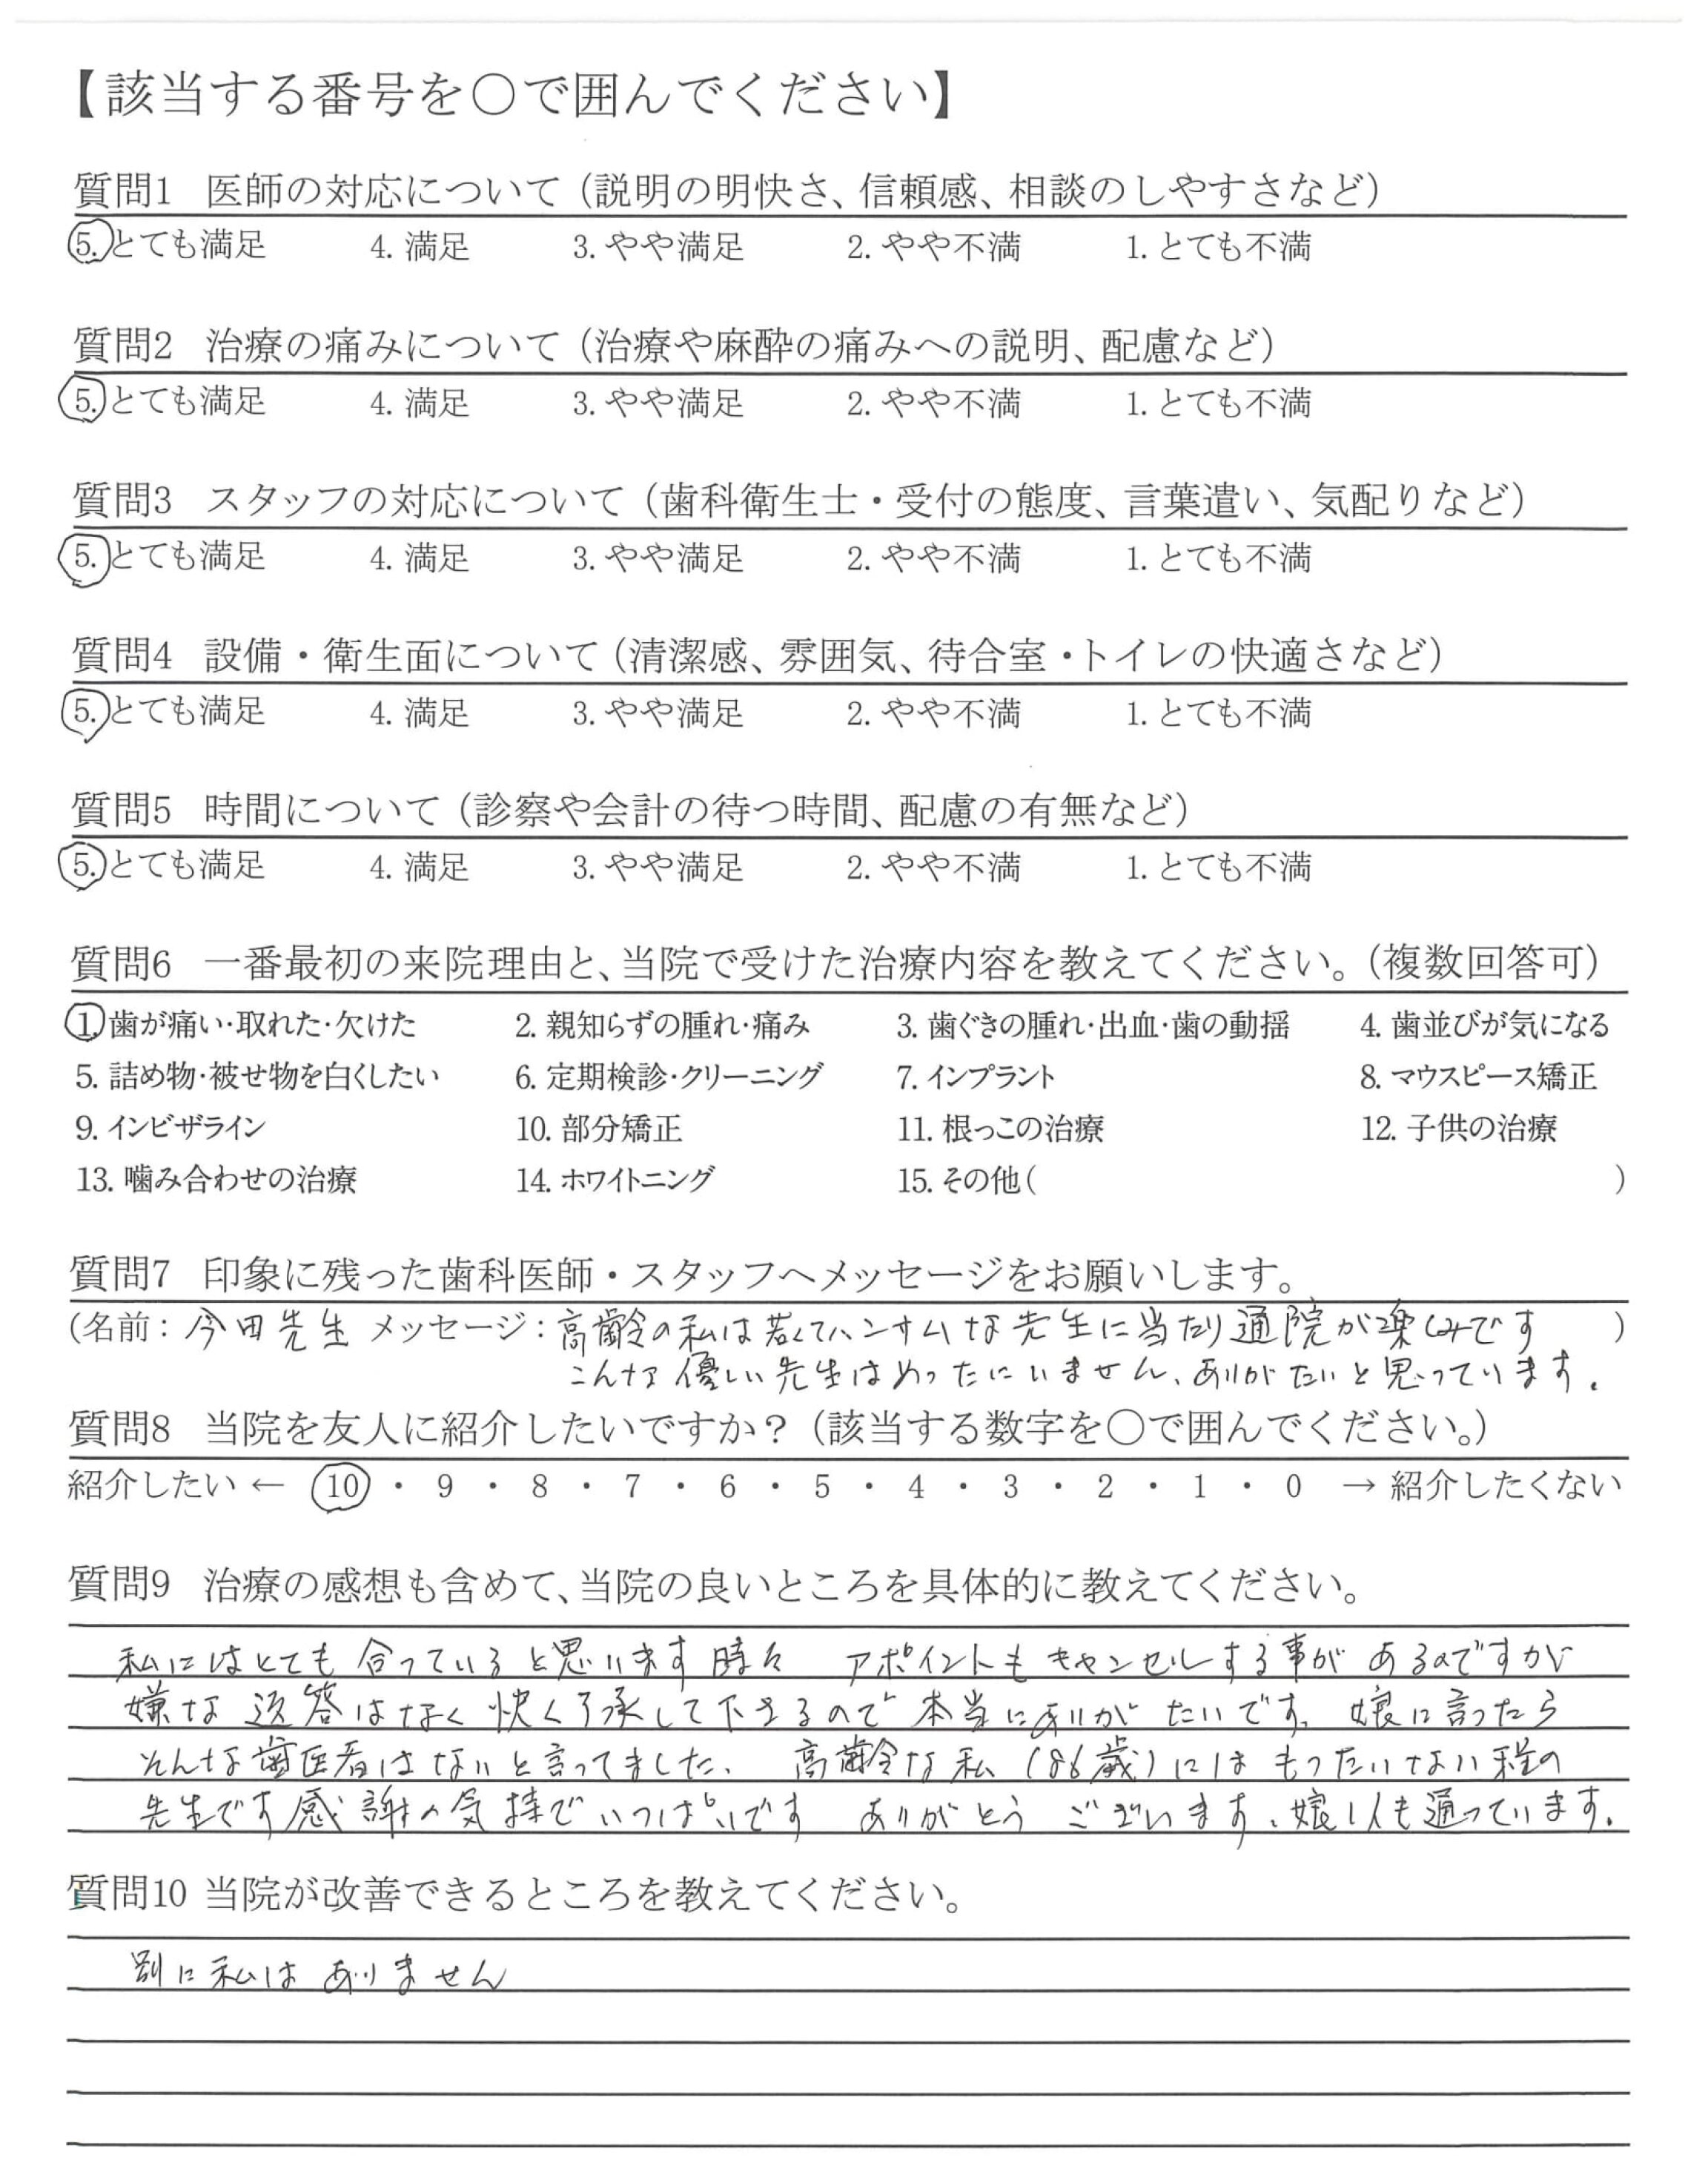 【該当する番号を○で囲んでください】
質問1 医師の対応について（説明の明快さ、信頼感、相談のしやすさなど）
5. とても満足 4. 満足 3. やや満足 2. やや不満 1. とても不満
質問2 治療の痛みについて（治療や麻酔の痛みへの説明、配慮など）
5. とても満足 4. 満足 3. やや満足 2. やや不満 1. とても不満
質問3 スタッフの対応について（歯科衛生士・受付の態度、言葉遣い、気配りなど）
5. とても満足 4. 満足 3. やや満足 2. やや不満 1. とても不満
質問4 設備・衛生面について（清潔感、雰囲気、待合室・トイレの快適さなど）
5. とても満足 4. 満足 3. やや満足 2. やや不満 1. とても不満
質問5 時間について（診察や会計の待つ時間、配慮の有無など）
5. とても満足 4. 満足 3. やや満足 2. やや不満 1. とても不満
質問6 一番最初の来院理由と、当院で受けた治療内容を教えてください。（複数回答可）
1. 歯が痛い・取れた・欠けた 2. 親知らずの腫れ・痛み 3. 歯ぐきの腫れ・出血・歯の動揺 4. 歯並びが気になる
5. 詰め物・被せ物を白くしたい 6. 定期検診・クリーニング 7. インプラント 8. マウスピース矯正
9. インビザライン 10. 部分矯正 11. 根っこの治療 12. 子供の治療
13. 噛み合わせの治療 14. ホワイトニング 15. その他（ ）
質問7 印象に残った歯科医師・スタッフへメッセージをお願いします。
（名前：今田先生 メッセージ：高齢の私は若くてハンサムな先生に当たり通院が楽しみです ）
こんな優しい先生はめったにいません、ありがたいと思っています。
質問8 当院を友人に紹介したいですか？（該当する数字を○で囲んでください。）
紹介したい ← 10 ・ 9 ・ 8 ・ 7 ・ 6 ・ 5 ・ 4 ・ 3 ・ 2 ・ 1 ・ 0 → 紹介したくない
質問9 治療の感想も含めて、当院の良いところを具体的に教えてください。
私にはとても合っていると思います時々 アポイントもキャンセルする事があるのですが
嫌な返答はなく快く了承して下さるので本当にありがたいです。娘に言ったら
そんな歯医者はないと言ってました、 高齢な私（86歳）にはもったいない程の
先生です感謝の気持でいっぱいです ありがとうございます、娘1人も通っています。
質問10 当院が改善できるところを教えてください。
別に私はありません